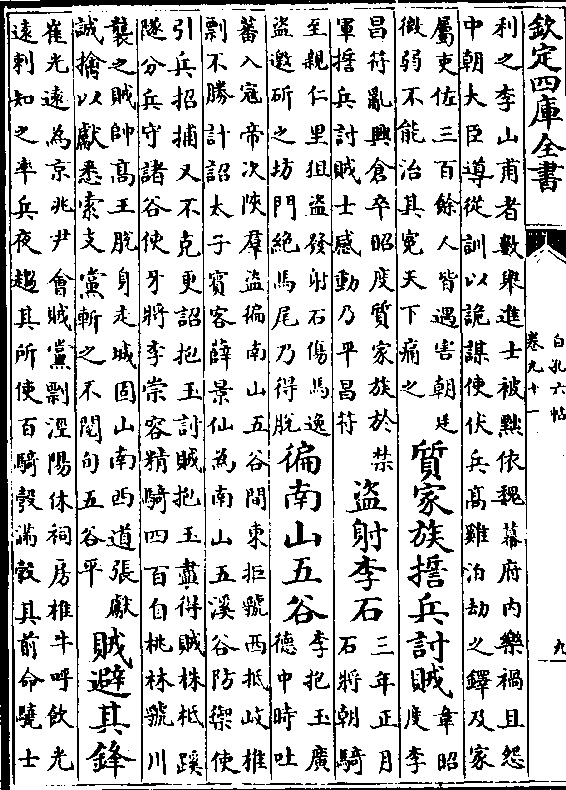 欽定四庫全書
白孔六帖
卷九十一
九
利之李山甫者數舉進士被黜依魏幕府内樂禍且怨
中朝大臣導從訓以詭謀使伏兵髙雞泊劫之鐸及家
屬吏佐三百餘人皆遇害朝廷
微弱不能治其寃天下痛之
質家族誓兵討賊
韋昭
度李
昌符亂興倉卒昭度質家族於禁
軍誓兵討賊士感動乃平昌符
盜射李石
三年正月
石將朝騎
至親仁里狙盜發射石傷馬逸
盜邀斫之坊門絶馬尾乃得脫
徧南山五谷
李抱玉廣
德中時吐
蕃入寇帝次陜羣盜徧南山五谷間東拒虢西抵岐椎
剽不勝計詔太子賓客薛景仙為南山五溪谷防禦使
引兵招捕又不克更詔抱玉討賊抱玉盡得賊株柢蹊
隧分兵守諸谷使牙將李崇客精騎四百自桃林虢川
襲之賊帥髙玉脫身走城固山南西道張獻
誠擒以獻悉索支黨斬之不閱旬五谷平
賊避其鋒
崔光遠為京兆尹會賊黨剽涇陽休祠房椎牛呼飲光
遠刺知之率兵夜趨其所使百騎彀滿彀其前命驍士